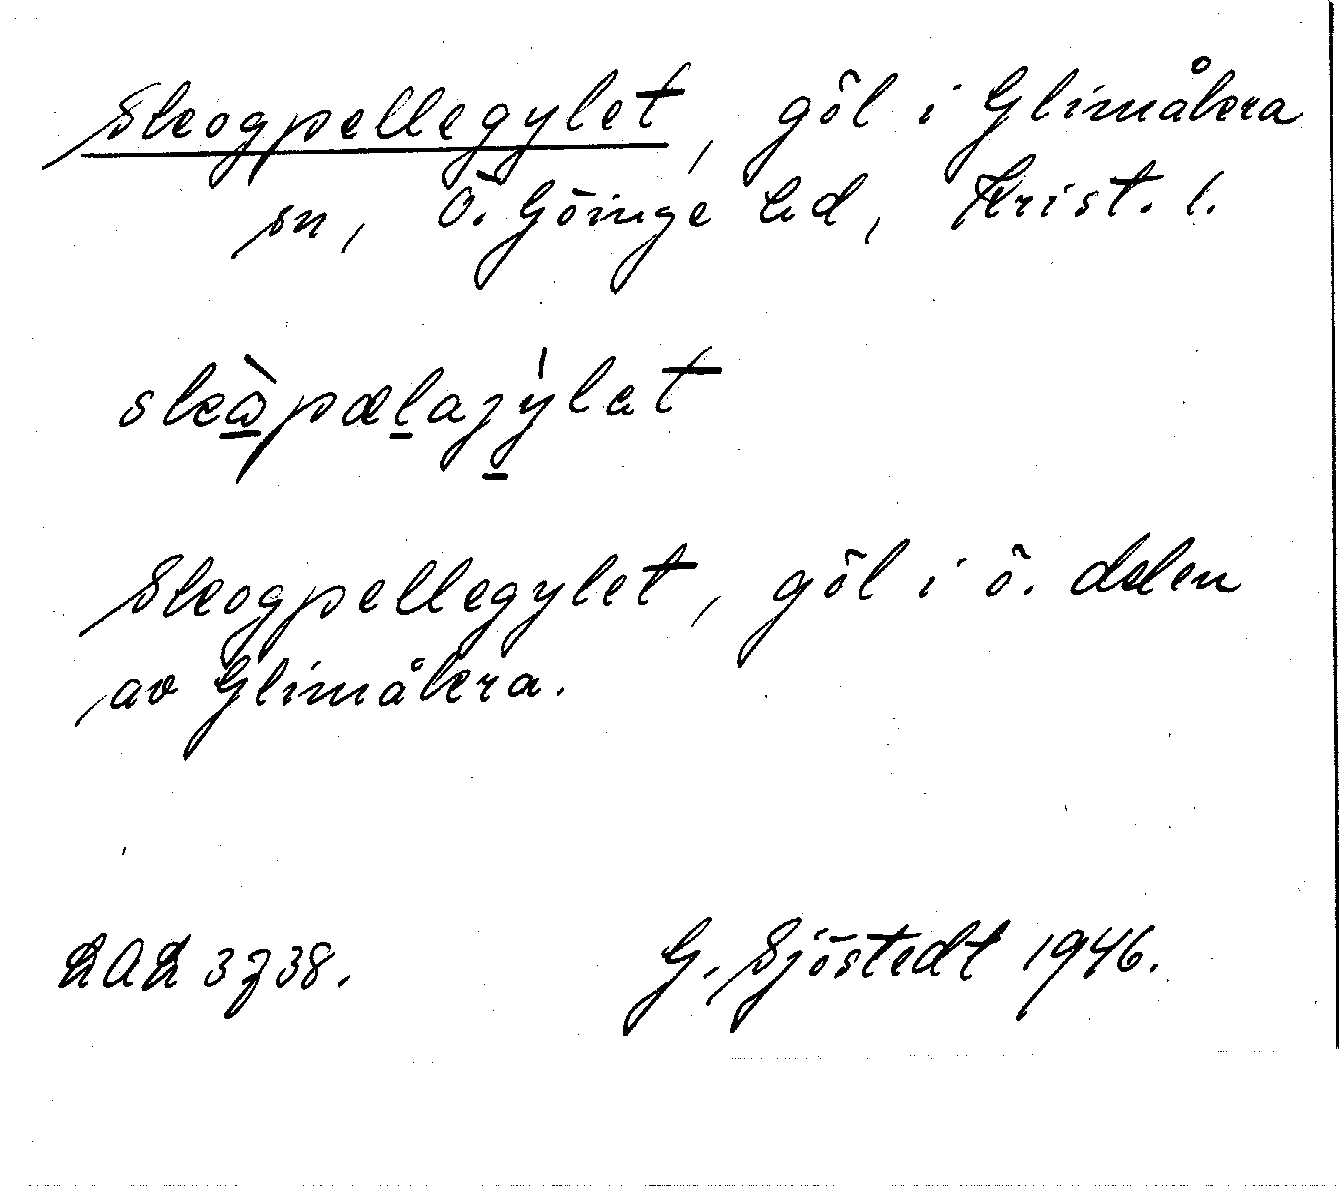 Skogpellegylet, göl i Glimåkra
sn, Ö. Göinge hd, Krist. l.
skɷ̀pælajy̍lat
Skogpellegylet, göl i ö. delen
av Glimåkra.
LAL 3738.  G. Sjöstedt 1946.